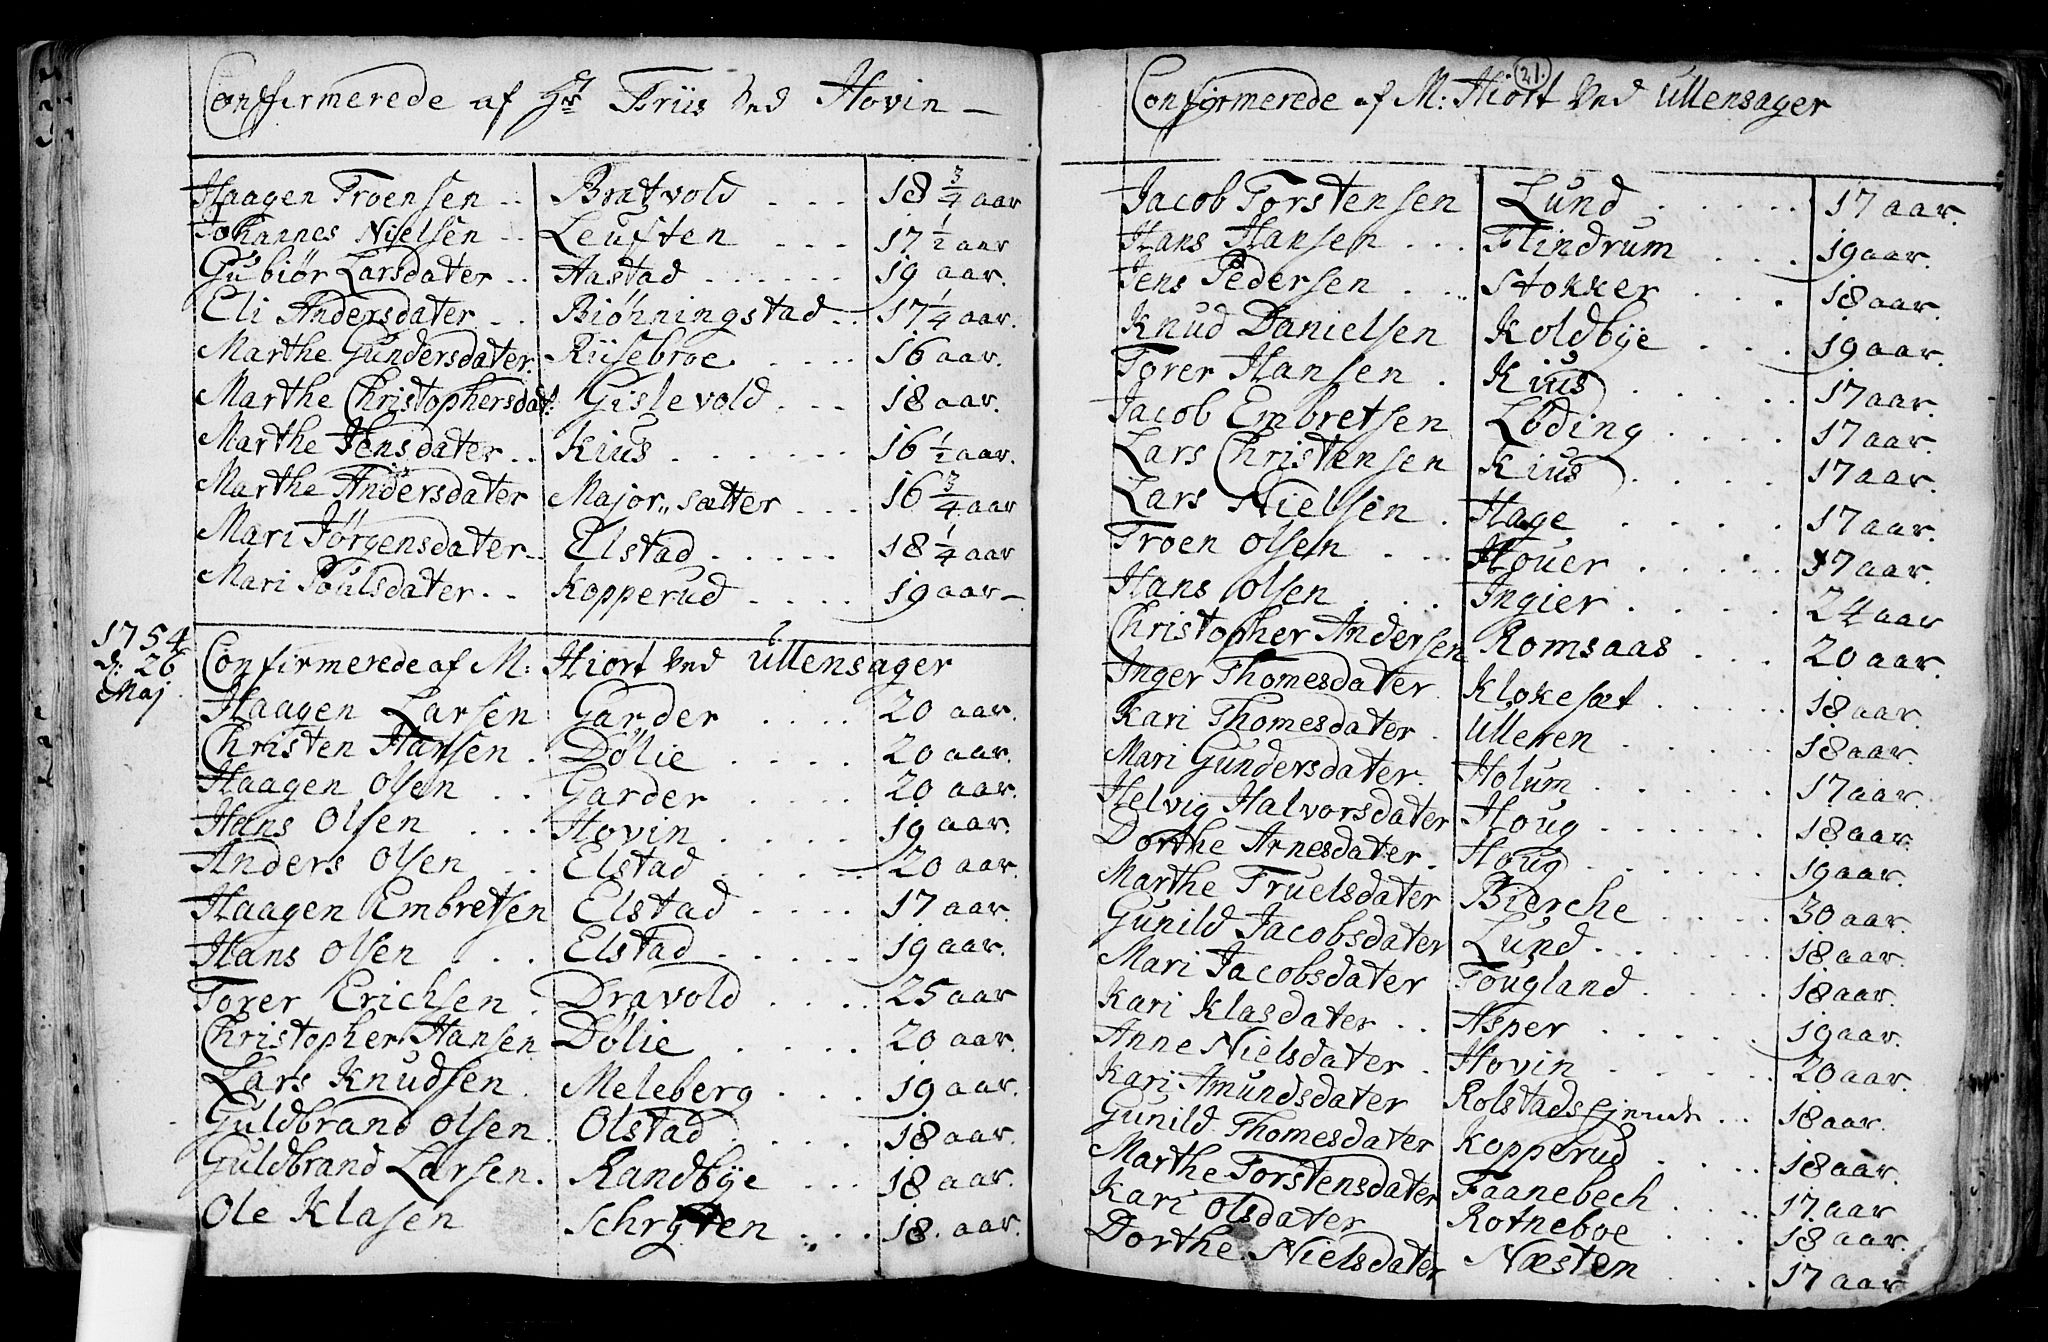 Confirmerede af Hr Friis Ved Hovin —
Haagen Troensen .. Bratvold . . . 18 3/4 aar
Johannes Nielsen .. Leusten . . . 17 1/2 aar
Gubiør Larsdater .. Aastad . . . . . . 19 aar.
Eli Andersdater . . Biöhningstad .. 17 1/4 aar.
Marthe Gundersdater. Riisebroe . . . . 16 aar.
Marthe Christophersdat: Gislevold . . . 18 aar.
Marthe Jensdater .. Kius . . . . . . 16 1/2 aar.
Marthe Andersdater Major,, sætter . . . 16 3/4 aar
Mari Jørgensdater .. Elstad . . . . . 18 1/4 aar
Mari Poulsdater .. Kopperud . . . . 19 aar —
1754
d: 26
Maj
Confirmerede af M: Hiort Ved Ullensager
Haagen Larsen Garder . . . . 20 aar.
Christen Hansen . Dølie . . . . 20 aar.
Haagen Olsen . . Garder . . . . 20 aar.
Hans Olsen . . . Hovin . . . . 19 aar.
Anders Olsen . . Elstad . . . . . 20 aar.
Haagen Embretsen Elstad . . . . 17 aar.
Hans Olsen . . Elstad . . . . . 19 aar.
Torer Erichsen . Dravold . . . . 25 aar
Christopher Hansen Dølie . . . . 20 aar.
Lars Knudsen . Meleberg . . . 19 aar.
Guldbrand Olsen . Olstad . . . . 18 aar.
Guldbrand Larsen . Randbÿe . . . 18 aar.
Ole Klasen . . . 18. aar.
21.
Confirmerede af M: Hiort Ved Ullensager
Jacob Torstensen Lund . . . . . 17 aar.
Hans Hansen . . . Flindrum . . . 19 aar.
Jens Pedersen . . . Stokker . . . 18 aar.
Knud Danielsen Koldbÿe . . . 19 aar.
Torer Hansen . Kius . . . . . 17 aar.
Jacob Embretsen Løding . . . . 17 aar.
Lars Christensen Kius . . . . 17 aar.
Lars Nielsen . Hage . . . . 17 aar.
Troen Olsen . . Houer . . . . . 17 aar.
Hans Olsen . . . Ingier . . . . 24 aar
Christopher Andersen Romsaas . . . 20 aar.
Inger Thomesdater Klokesæt . . . . . 18 aar.
Kari Thomesdater . Ulleren . . . . . 18 aar.
Mari Gundersdater . Holum . . . . . 17 aar.
Helvig Halvorsdater Houg . . . . . . 18 aar.
Dorthe Arnesdater . Houg . . . . . 19 aar.
Marthe Truelsdater Bierche . . . . 30 aar.
Gunild Jacobsdater Lund . . . . . 18 aar.
Mari Jacobsdater Fougland . . . . 18 aar.
Kari Klasdater . . Asper . . . . 19 aar.
Anne Nielsdater . Hovin . . . . . 20 aar.
Kari Amundsdater . . 18 aar.
Gunild Thomesdater Kopperud . . . . 18 aar.
Marthe Torstensdater Faanebech . . . . 17 aar
Kari Olsdater Rotneboe . . . 18 aar.
Dorthe Nielsdater Næsten . . . . 17 aar